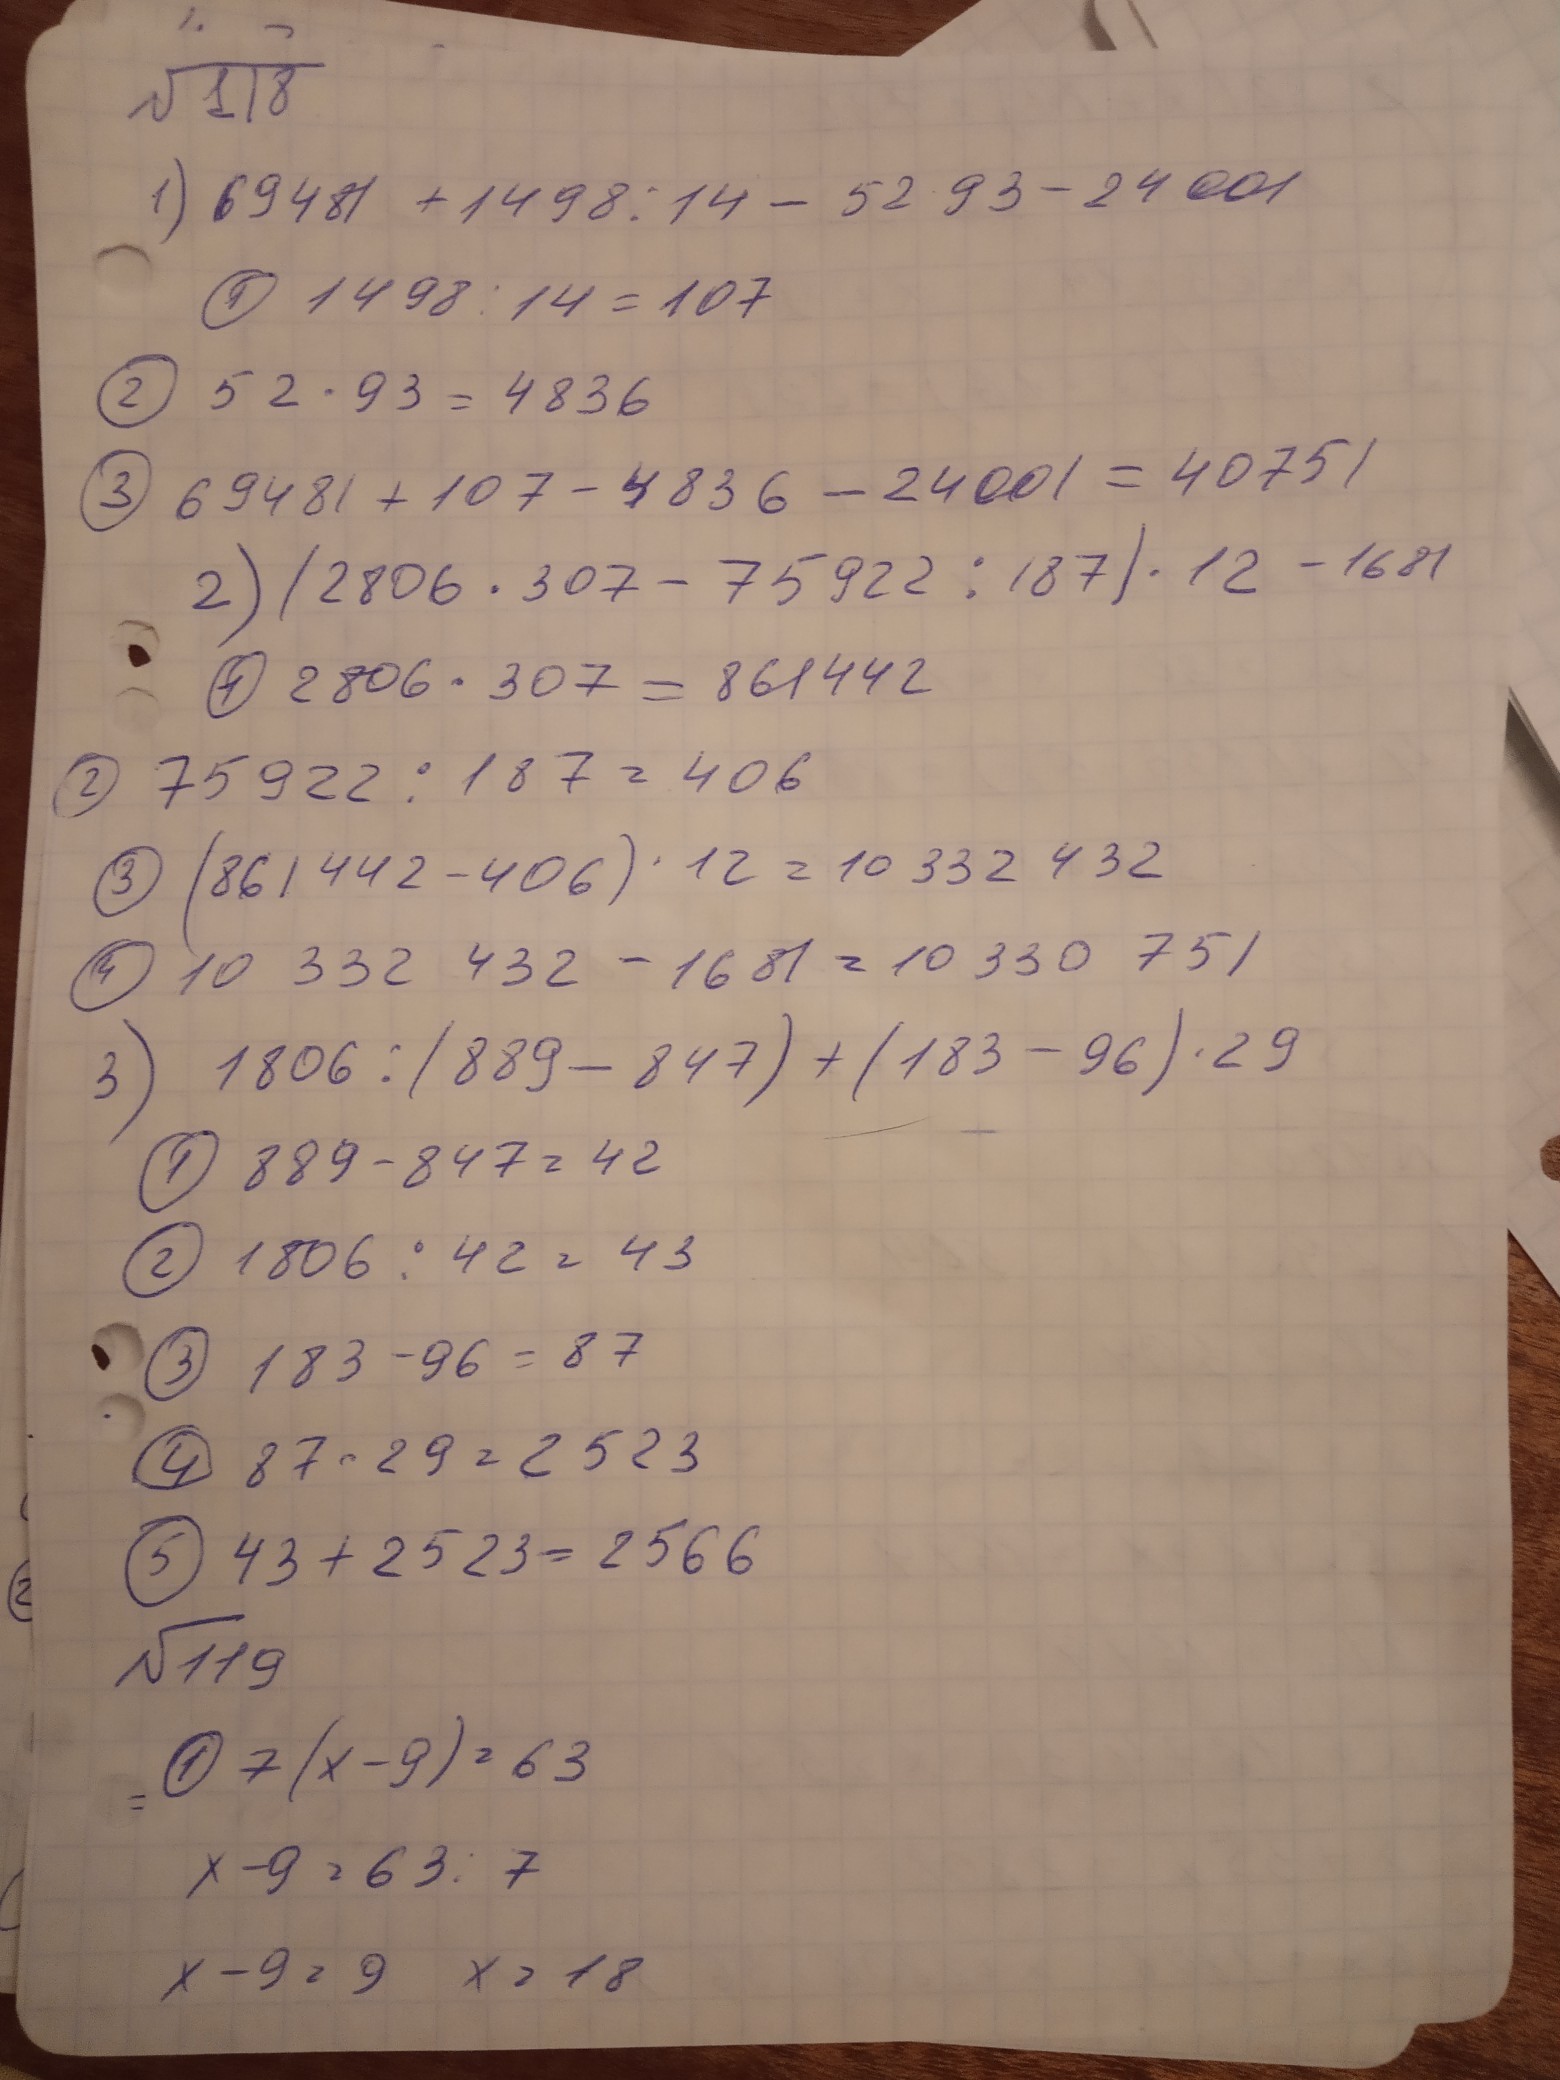 №118
1) 69481 + 1498 : 14 - 52 · 93 - 24001
① 1498 : 14 = 107
② 52 · 93 = 4836
③ 69481 + 107 - 4836 - 24001 = 40751
2) (2806 · 307 - 75922 : 187) · 12 - 1681
① 2806 · 307 = 861442
② 75922 : 187 = 406
③ (861442 - 406) · 12 = 10 332 432
④ 10 332 432 - 1681 = 10 330 751
3) 1806 : (889 - 847) + (183 - 96) · 29
① 889 - 847 = 42
② 1806 : 42 = 43
③ 183 - 96 = 87
④ 87 · 29 = 2523
⑤ 43 + 2523 = 2566
№119
① 7(x - 9) = 63
=
x - 9 = 63 : 7
x - 9 = 9 x = 18